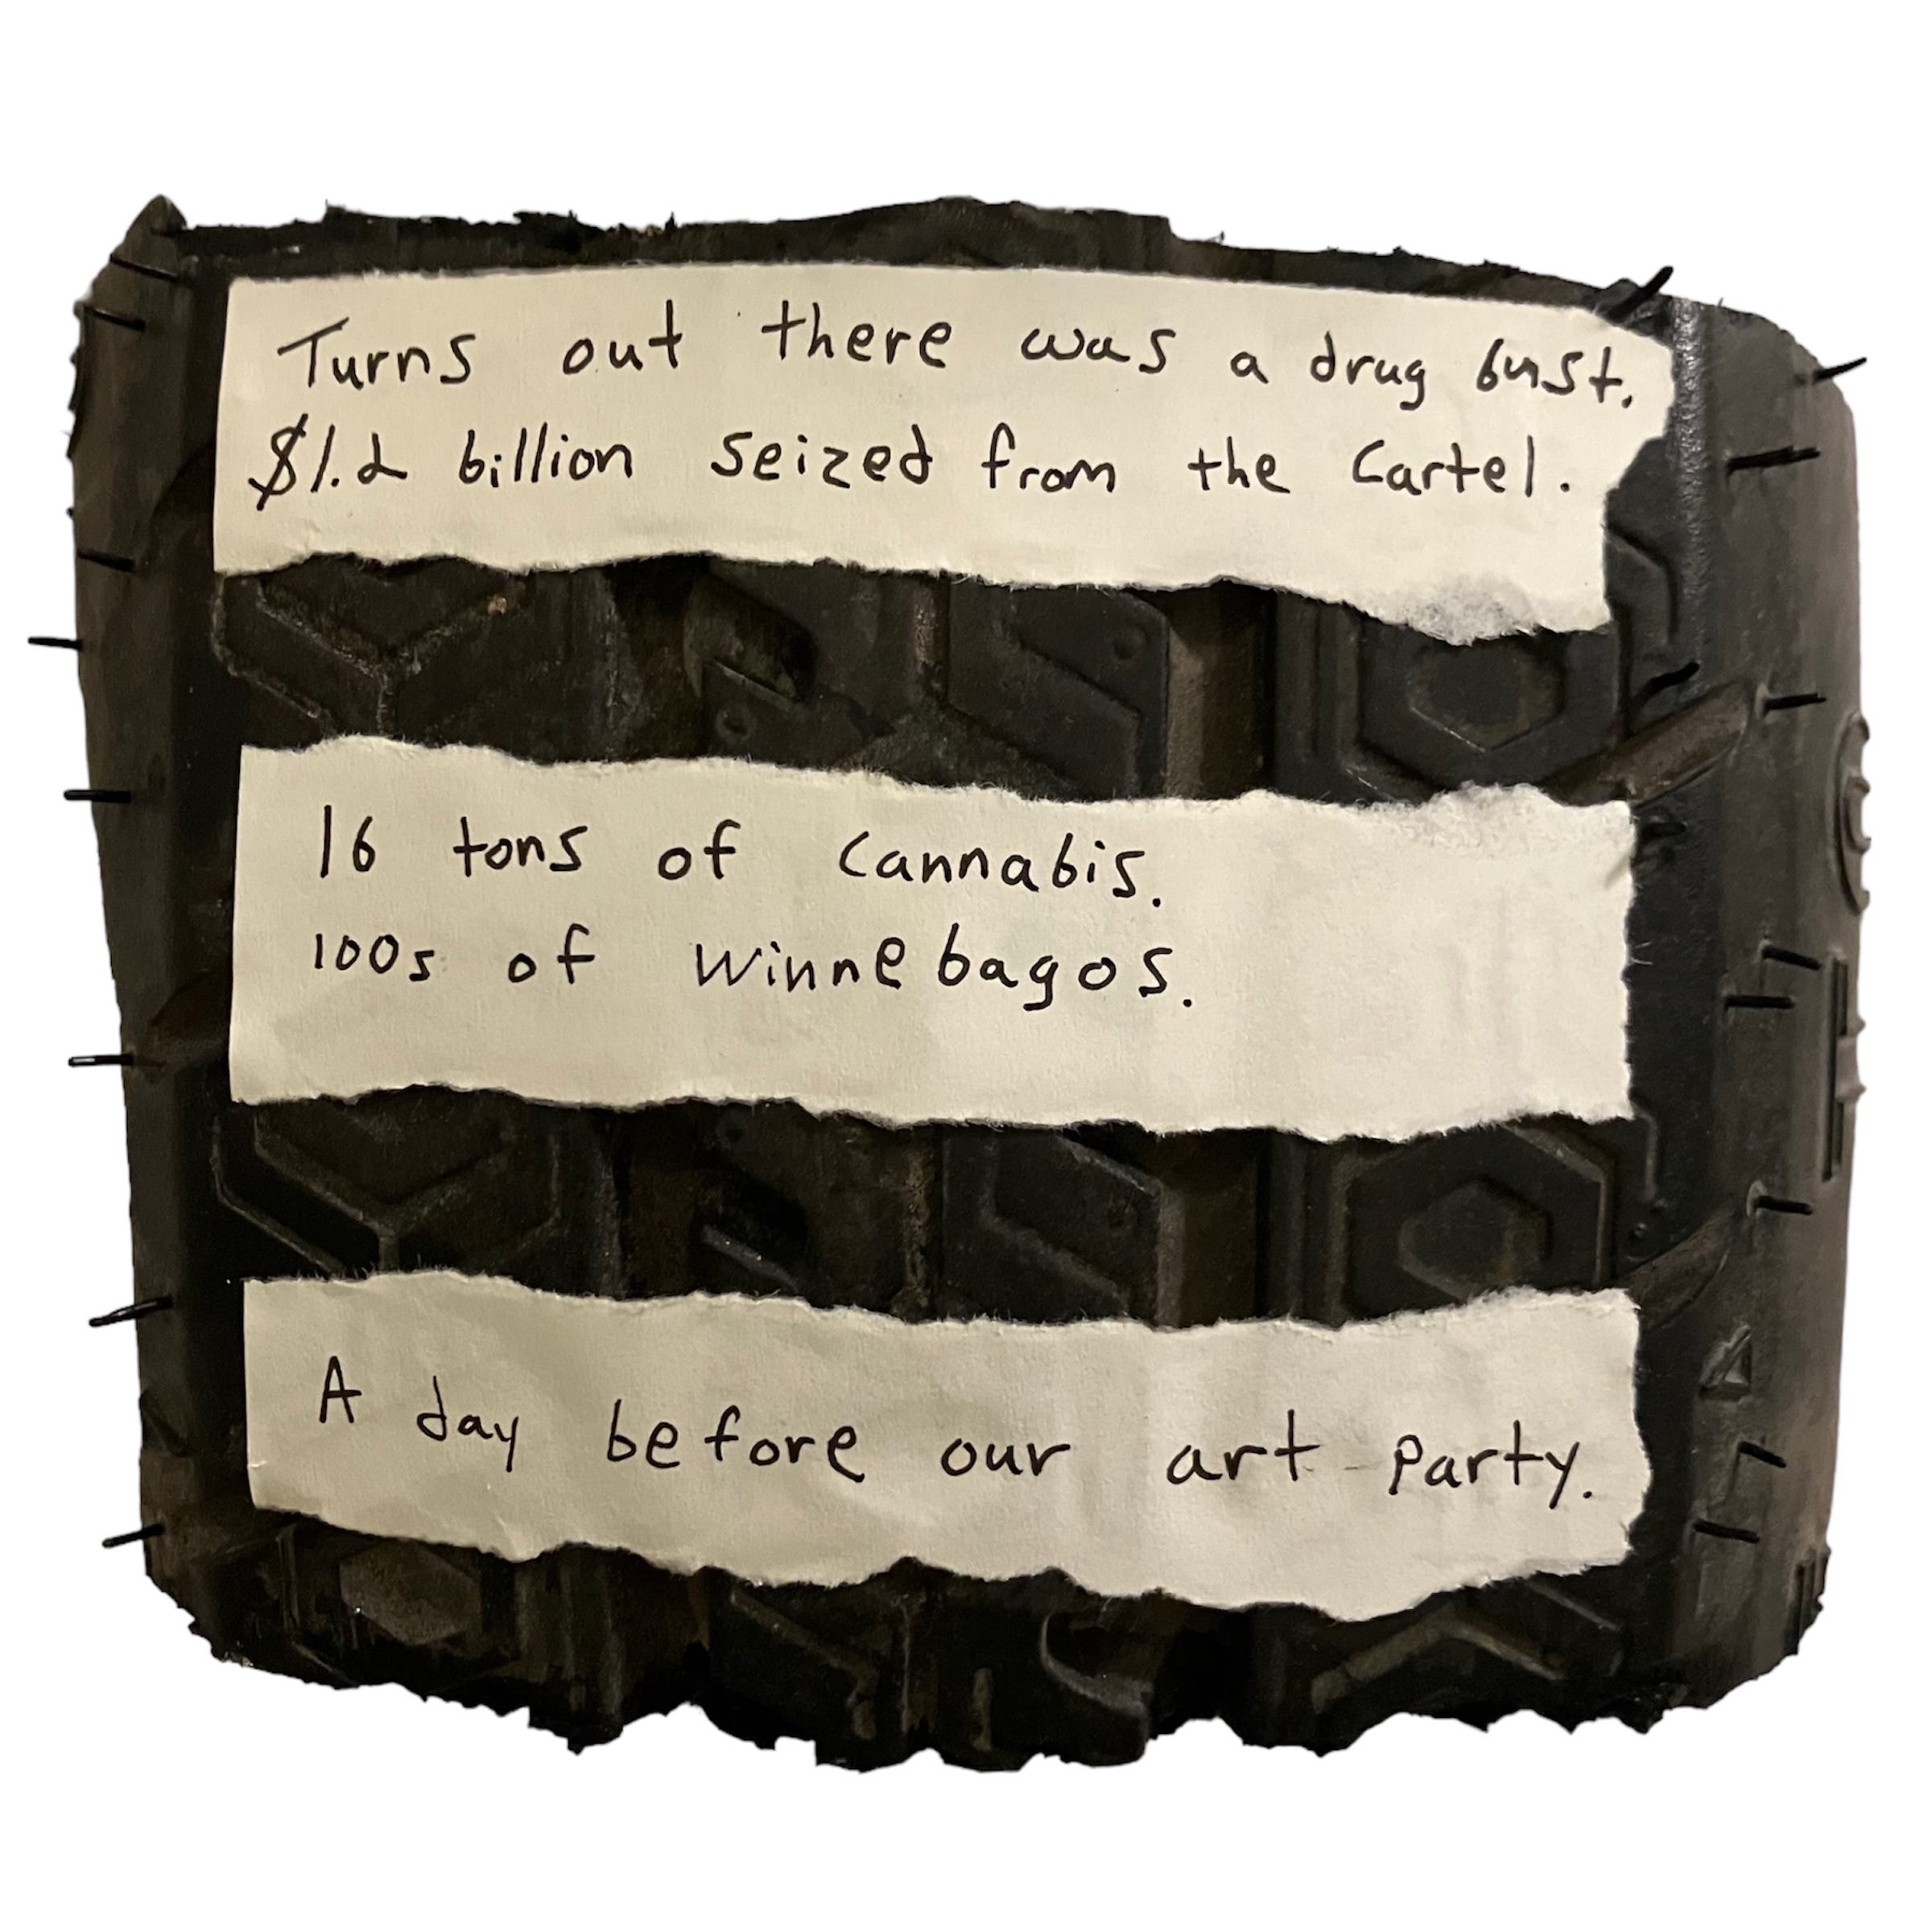 Turns out there was a drug bust.
$1.2 billion seized from the Cartel.
16 tons of Cannabis.
100s of Winnebagos.
A day before our art party.